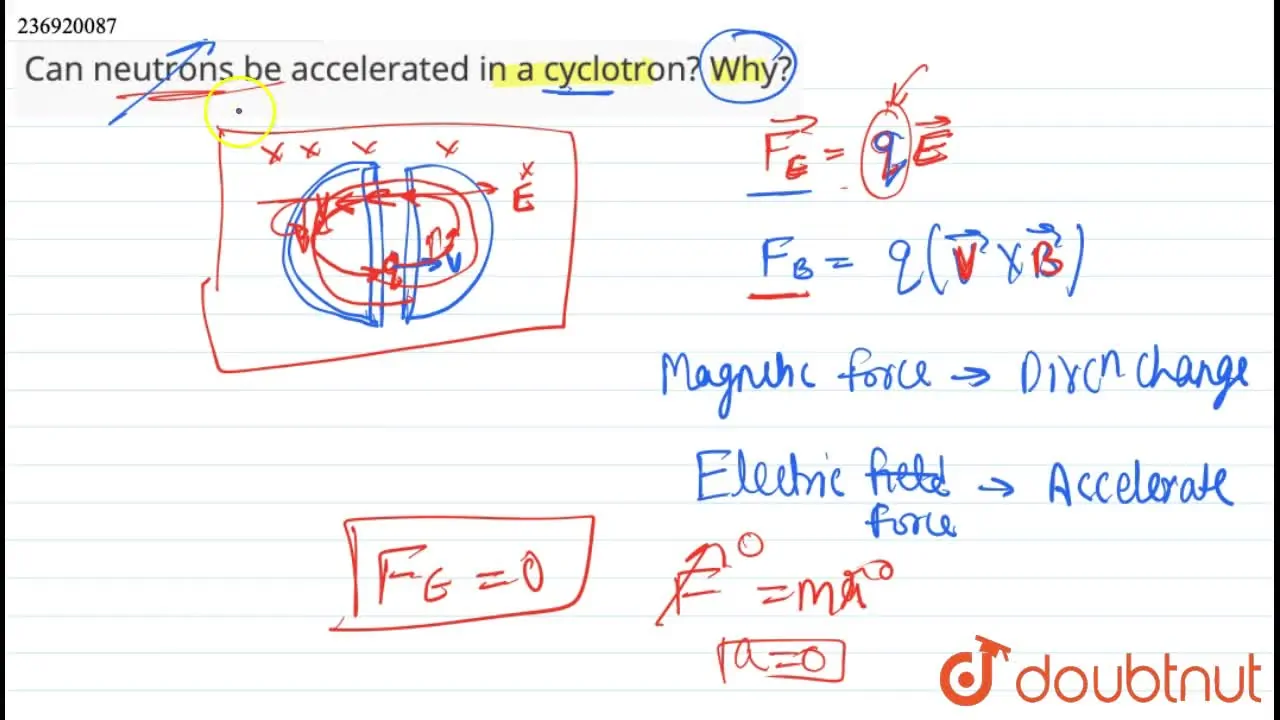 236920087
Can neutrons be accelerated in a cyclotron? Why?
x x x x x
E
q v
F_E = q E
F_B = q ( V x B )
Magnetic force → Dirc^n Change
Electric field → Accelerate
force
F_E = 0
F^0 = ma^0
a = 0
doubtnut